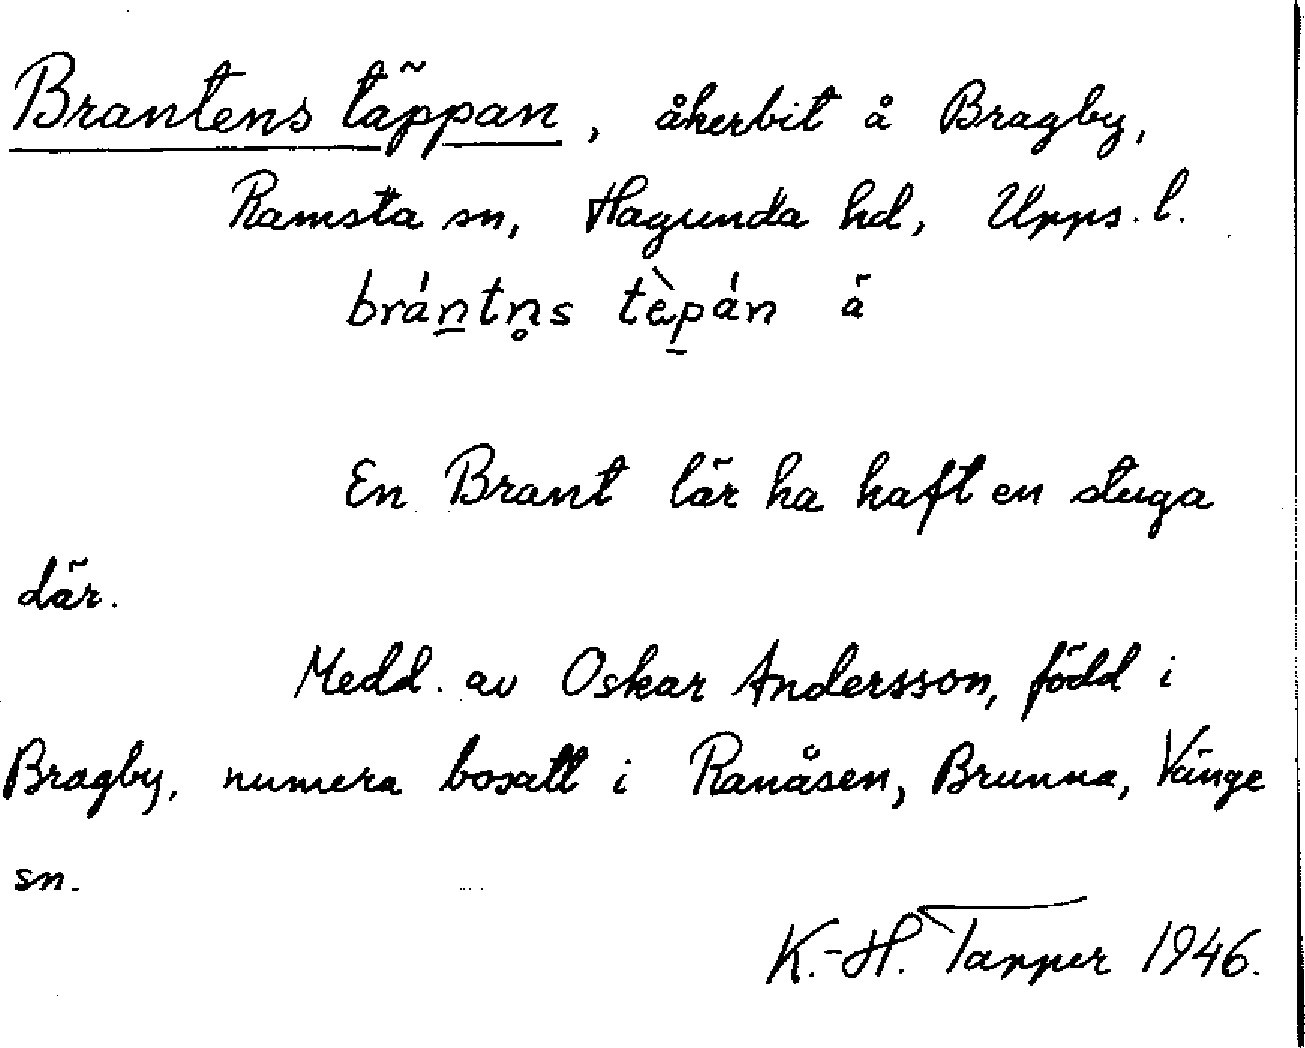 Brantens täppan, åkerbit å Bragby,
Ramsta sn, Hagunda hd, Upps. l.
brán̲tn̥s tèp̲án ä
En Brant lär ha haft en stuga
där.
Medd. av Oskar Andersson, född i
Bragby, numera bosatt i Ranåsen, Brunna, Vänge
sn.
K.-H. Tapper 1946.